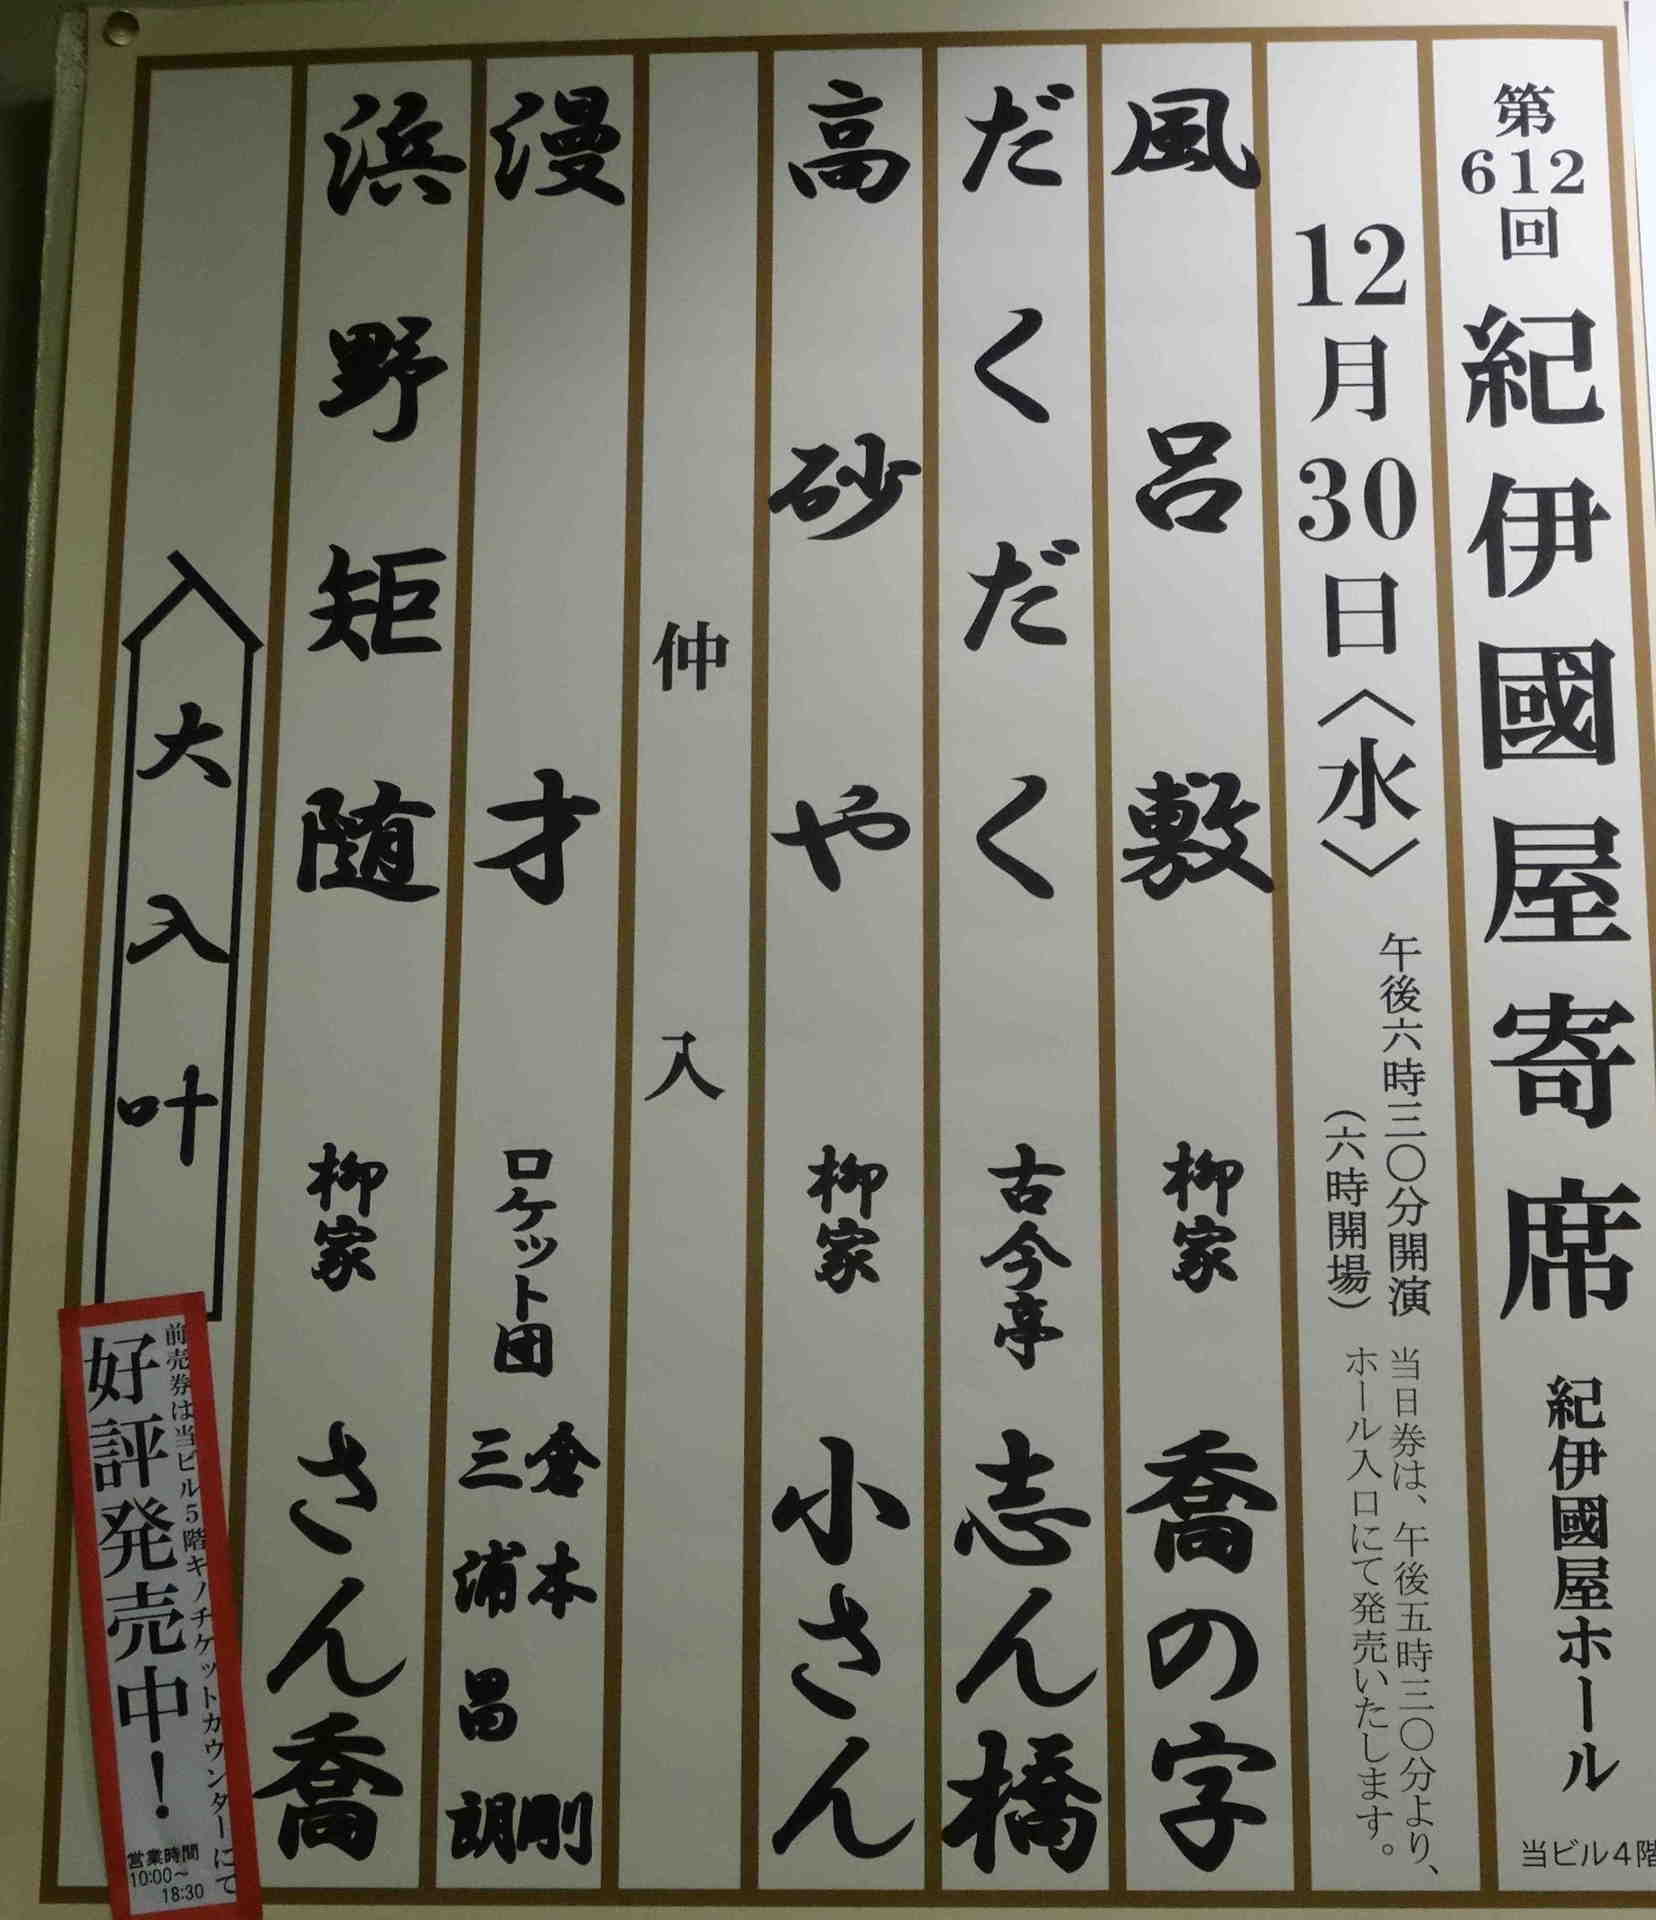 第612回 紀伊國屋寄席 紀伊國屋ホール 当ビル4階
12月30日〈水〉
午後六時三〇分開演
(六時開場)
当日券は、午後五時三〇分より、
ホール入口にて発売いたします。
風呂敷 柳家 喬の字
だくだく 古今亭 志ん橋
高砂や 柳家 小さん
仲入
漫才 ロケット団
倉本剛
三浦昌朗
浜野矩随 柳家 さん喬
大入叶
前売券は当ビル5階キノチケットカウンターにて
好評発売中!
営業時間
10:00〜
18:30